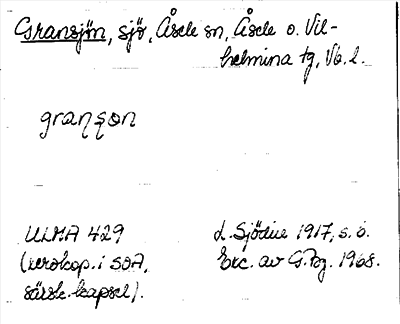 Gransjön, sjö, Åsele sn, Åsele o. Vil-
helmina tg, Vb. l.
granşon
ULMA 429
(xerokop. i SOA,
särsk. kapsel).
L. Sjödin 1917, s. 6.
Exc. av G. Pg. 1968.